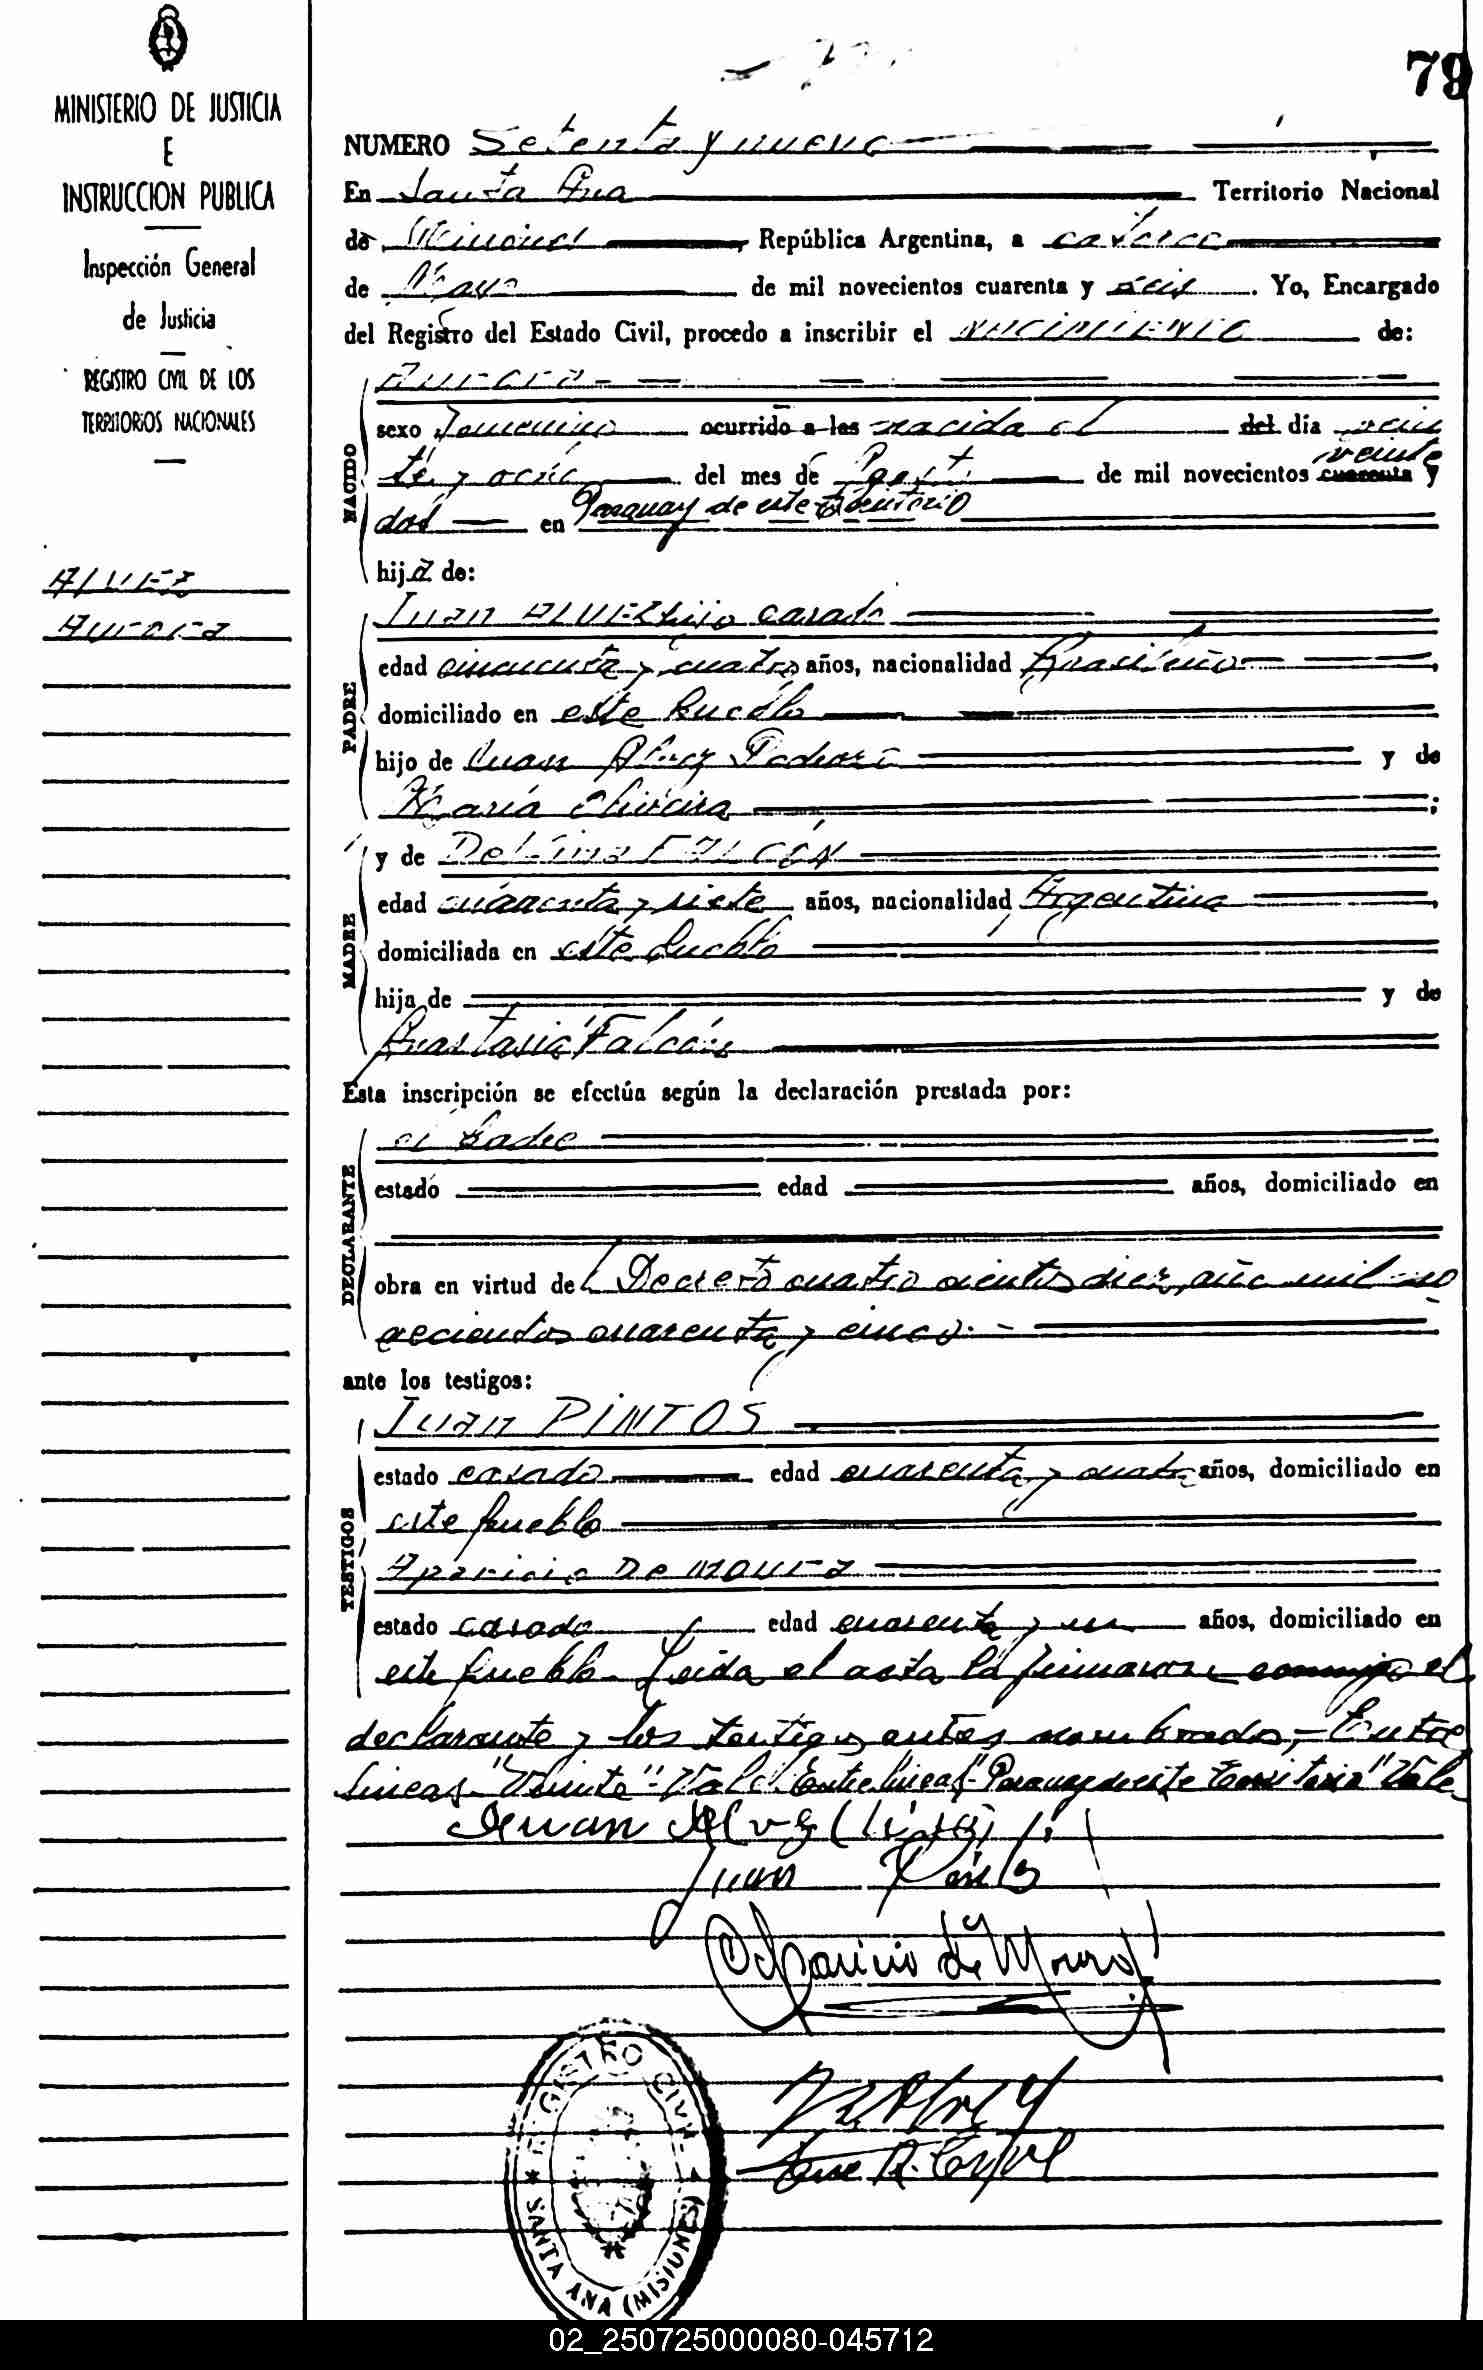 79
MINISTERIO DE JUSTICIA
E
INSTRUCCION PUBLICA
Inspección General
de Justicia
REGISTRO CIVIL DE LOS
TERRITORIOS NACIONALES
ALVEZ
Aurora
NUMERO Setenta y nueve
En Santa Ana Territorio Nacional
de Misiones República Argentina, a catorce
de Mayo de mil novecientos cuarenta y seis. Yo, Encargado
del Registro del Estado Civil, procedo a inscribir el nacimiento de:
NACIDO
Aurora
sexo femenino ocurrido a las nacida el del día vein
te y ocho del mes de Agosto de mil novecientos cuarenta veinte y
dos en Paraguay de este territorio
hija de:
PADRE
Juan ALVEZ hijo casado
edad cincuenta y cuatro años, nacionalidad Brasileño
domiciliado en este pueblo
hijo de Juan Alvez y de
María Oliveira;
MADRE
y de Delfina FALCÓN
edad cuarenta y siete años, nacionalidad Argentina
domiciliada en este pueblo
hija de y de
Anastasia Falcón
Esta inscripción se efectúa según la declaración prestada por:
DECLARANTE
el padre
estado edad años, domiciliado en
obra en virtud del Decreto cuatro cientos diez, año mil no
vecientos cuarenta y cinco.-
ante los testigos:
TESTIGOS
Juan PINTOS
estado casado edad cuarenta y cuatro años, domiciliado en
este pueblo
Aparicio De MOURA
estado casado edad cuarenta y un años, domiciliado en
este pueblo. Leida el acta la firmaron conmigo el
declarante y los testigos antes nombrados,- Entre
lineas-"Veinte"-Vale. Entre lineas-"Paraguay de este territorio" Vale
Juan Alvez (hijo)
Juan Pintos
Aparicio de Moura
REGISTRO CIVIL
SANTA ANA (MISIONES)
02_250725000080-045712